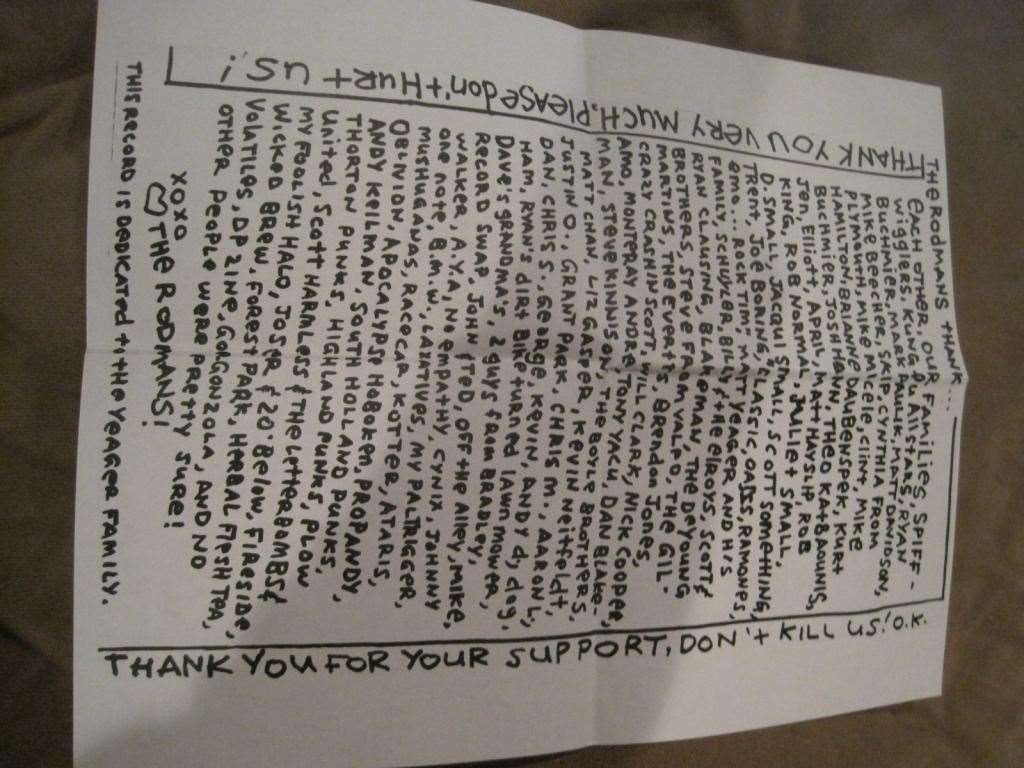 THE RODMANS THANK...
EACH OTHER, OUR FAMILIES, SPIFF-
WIGGLERS, KUNG FU ALLSTARS, RYAN
BUCHMIER, MARK PAULIK, MATT DAVIDSON,
MIKE BEECHER, SKIP, CYNTHIA FROM
PLYMOUTH, MIKE MICELE, CLINT, MIKE
HAMILTON, BRIANNE DAUBENSPEK, KURT
BUCHMIER, JOSH HANN, THEO KATSAOUNIS,
JEN, ELLIOTT, APRIL, MATT HAYSLIP, ROB
KING, ROB NORMAL, JULIET SMALL,
D. SMALL, JACQUI SMALL, SCOTT SOMETHING,
TRENT, JOE BORING, CLASSIC, OASIS, RAMONES,
EMO... ROCK TIM," MATT YEAGER AND HIS
FAMILY, SCHUYLER, BILLY & THE ELROYS, SCOTT &
RYAN CLAUSING, BLAKEMAN, THE DEYOUNG
BROTHERS, STEVE FROM VALPO, THE GIL-
MARTINS, THE EVERTS, BRENDON JONES,
CRAZY CRASHIN SCOTT, WILL CLARK, NICK COOPER,
AMO, MONTERAY ANDRE, TONY YACU, DAN BLAKE-
MAN, STEVE KINNISON, THE BOYLE BROTHERS.
MATT CHAN, LIZ GASPER, KEVIN NEITFELDT,
JUSTIN O., GRANT PARK, CHRIS M., AARON L,
DAN, CHRIS S., GEORGE, KEVIN, ANDY D, DEG,
HAM, RYAN'S DIRT BIKE TURNED LAWN MOWER,
DAVE'S GRANDMA'S, 2 GUYS FROM BRADLEY,
RECORD SWAP, JOHN & TED, OFF THE ALLEY, MIKE,
WALKER, A.Y.A, NO EMPATHY, CYNIX, JOHNNY
ONE NOTE, B.M.W., LAXATIVES, MY PAL TRIGGER,
MUSHUGANAS, RACECAR, KOTTER, ATARIS,
OBLIVION, APOCALYPSE HOBOKEN, PROPANDY,
ANDY KEILMAN, SOUTH HOLLAND PUNKS,
THORTON PUNKS, HIGHLAND PUNKS, PLOW
UNITED, SCOTT HARMLESS & THE LETTERBOMBS &
MY FOOLISH HALO, JOSER & 20' BELOW, FIRESIDE,
WICKED BREW, FOREST PARK, HERBAL FLESH TEA,
VOLATILES, DP ZINE, GORGONZOLA, AND NO
OTHER PEOPLE WERE PRETTY SURE!
XOXO
♡ THE RODMANS!
THIS RECORD IS DEDICATED TO THE YEAGER FAMILY.
THANK YOU VERY MUCH, PLEASE DON'T HURT US!
THANK YOU FOR YOUR SUPPORT, DON'T KILL US! O.K.